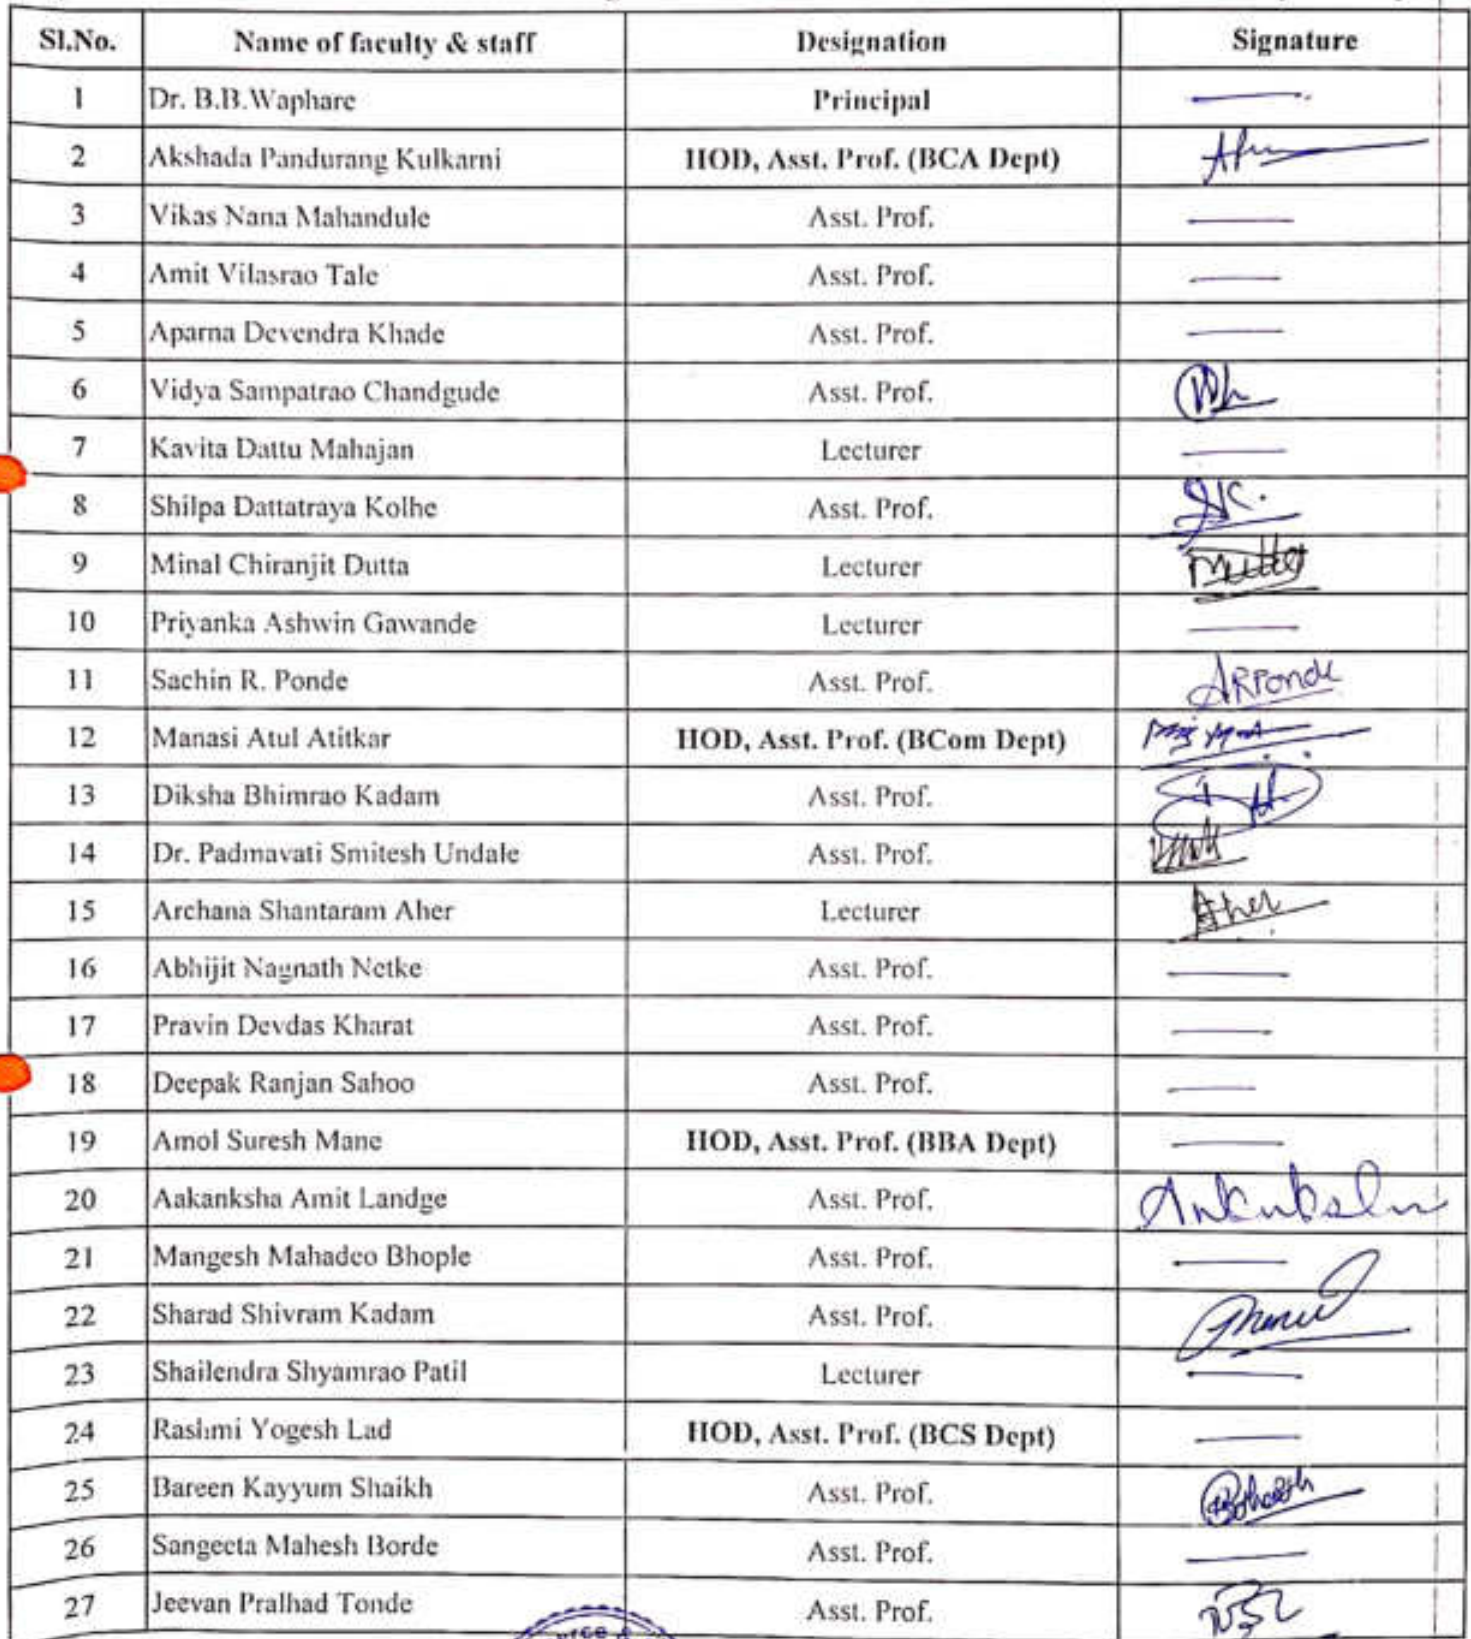 Sl.No. Name of faculty & staff Designation Signature
1 Dr. B.B.Waphare Principal
2 Akshada Pandurang Kulkarni HOD, Asst. Prof. (BCA Dept)
3 Vikas Nana Mahandule Asst. Prof.
4 Amit Vilasrao Tale Asst. Prof.
5 Aparna Devendra Khade Asst. Prof.
6 Vidya Sampatrao Chandgude Asst. Prof.
7 Kavita Dattu Mahajan Lecturer
8 Shilpa Dattatraya Kolhe Asst. Prof.
9 Minal Chiranjit Dutta Lecturer
10 Priyanka Ashwin Gawande Lecturer
11 Sachin R. Ponde Asst. Prof. SRPonde
12 Manasi Atul Atitkar HOD, Asst. Prof. (BCom Dept)
13 Diksha Bhimrao Kadam Asst. Prof.
14 Dr. Padmavati Smitesh Undale Asst. Prof.
15 Archana Shantaram Aher Lecturer Aher
16 Abhijit Nagnath Netke Asst. Prof.
17 Pravin Devdas Kharat Asst. Prof.
18 Deepak Ranjan Sahoo Asst. Prof.
19 Amol Suresh Mane HOD, Asst. Prof. (BBA Dept)
20 Aakanksha Amit Landge Asst. Prof.
21 Mangesh Mahadeo Bhople Asst. Prof.
22 Sharad Shivram Kadam Asst. Prof.
23 Shailendra Shyamrao Patil Lecturer
24 Rashmi Yogesh Lad HOD, Asst. Prof. (BCS Dept)
25 Bareen Kayyum Shaikh Asst. Prof.
26 Sangeeta Mahesh Borde Asst. Prof.
27 Jeevan Pralhad Tonde Asst. Prof.